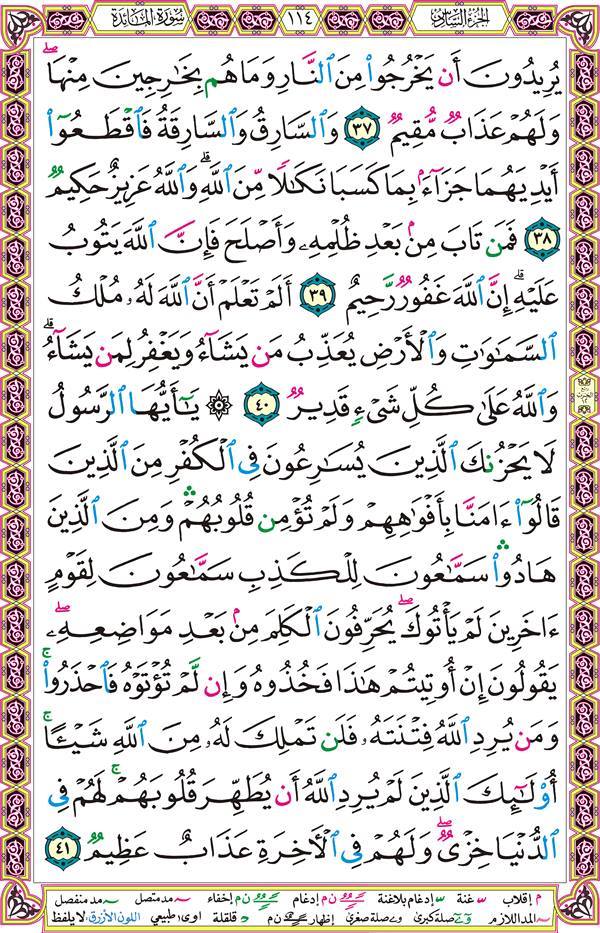 الجزء السادس ١١٤ سورة المائدة
يُرِيدُونَ أَن يَخْرُجُوا۟ مِنَ ٱلنَّارِ وَمَا هُم بِخَـٰرِجِينَ مِنْهَا ۖ
وَلَهُمْ عَذَابٌ مُّقِيمٌ ٣٧ وَٱلسَّارِقُ وَٱلسَّارِقَةُ فَٱقْطَعُوٓا۟
أَيْدِيَهُمَا جَزَآءًۢ بِمَا كَسَبَا نَكَـٰلًا مِّنَ ٱللَّهِ ۗ وَٱللَّهُ عَزِيزٌ حَكِيمٌ
٣٨ فَمَن تَابَ مِنۢ بَعْدِ ظُلْمِهِۦ وَأَصْلَحَ فَإِنَّ ٱللَّهَ يَتُوبُ
عَلَيْهِ ۗ إِنَّ ٱللَّهَ غَفُورٌ رَّحِيمٌ ٣٩ أَلَمْ تَعْلَمْ أَنَّ ٱللَّهَ لَهُۥ مُلْكُ
ٱلسَّمَـٰوَٰتِ وَٱلْأَرْضِ يُعَذِّبُ مَن يَشَآءُ وَيَغْفِرُ لِمَن يَشَآءُ ۗ
وَٱللَّهُ عَلَىٰ كُلِّ شَىْءٍ قَدِيرٌ ٤٠ ۞ يَـٰٓأَيُّهَا ٱلرَّسُولُ
لَا يَحْزُنكَ ٱلَّذِينَ يُسَـٰرِعُونَ فِى ٱلْكُفْرِ مِنَ ٱلَّذِينَ
قَالُوٓا۟ ءَامَنَّا بِأَفْوَٰهِهِمْ وَلَمْ تُؤْمِن قُلُوبُهُمْ ۛ وَمِنَ ٱلَّذِينَ
هَادُوا۟ ۛ سَمَّـٰعُونَ لِلْكَذِبِ سَمَّـٰعُونَ لِقَوْمٍ
ءَاخَرِينَ لَمْ يَأْتُوكَ ۖ يُحَرِّفُونَ ٱلْكَلِمَ مِنۢ بَعْدِ مَوَاضِعِهِۦ ۖ
يَقُولُونَ إِنْ أُوتِيتُمْ هَـٰذَا فَخُذُوهُ وَإِن لَّمْ تُؤْتَوْهُ فَٱحْذَرُوا۟ ۚ
وَمَن يُرِدِ ٱللَّهُ فِتْنَتَهُۥ فَلَن تَمْلِكَ لَهُۥ مِنَ ٱللَّهِ شَيْـًٔا ۚ
أُو۟لَـٰٓئِكَ ٱلَّذِينَ لَمْ يُرِدِ ٱللَّهُ أَن يُطَهِّرَ قُلُوبَهُمْ ۚ لَهُمْ فِى
ٱلدُّنْيَا خِزْىٌ ۖ وَلَهُمْ فِى ٱلْـَٔاخِرَةِ عَذَابٌ عَظِيمٌ ٤١
م إقلاب غنة إدغام بلاغنة ن م إدغام ن م إخفاء مد متصل مد منفصل
المد اللازم صلة كبرى صلة صغرى إظهار ن م قلقلة اوى طبيعي اللون الأزرق لا يلفظ